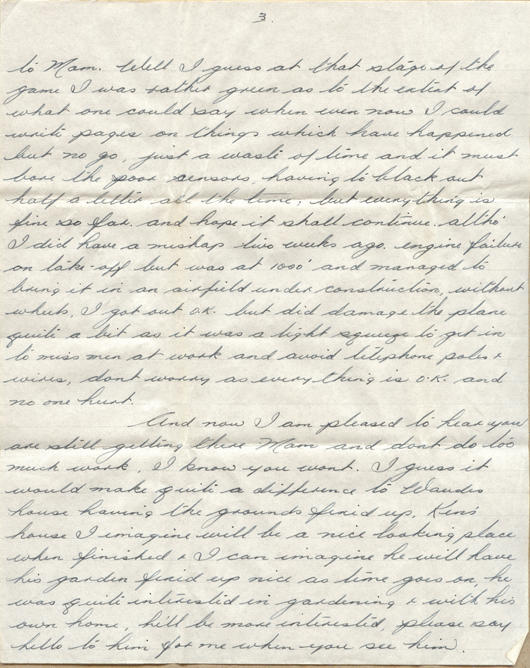 3.
to Mam. Well I guess at that stage of the
game I was rather green as to the extent of
what one could say when even now I could
write pages on things which have happened
but no go, just a waste of time and it must
bore the poor censors, having to black out
half a letter all the time, but everything is
fine so far. and hope it shall continue. altho'
I did have a mishap two weeks ago. engine failure
on take-off but was at 1000' and managed to
bring it in an airfield under construction, without
wheels, I got out O.K. but did damage the plane
quite a bit as it was a tight squeeze to get in
to miss men at work and avoid telephone poles &
wires, dont worry as everything is O.K. and
no one hurt.
And now I am pleased to hear you
are still getting there Mam and dont do too
much work, I know you wont. I guess it
would make quite a difference to
house having the grounds fixed up, Kens
house I imagine will be a nice looking place
when finished & I can imagine he will have
his garden fixed up nice as time goes on, he
was quite interested in gardening & with his
own home, he'll be more interested, please say
hello to him for me when you see him.